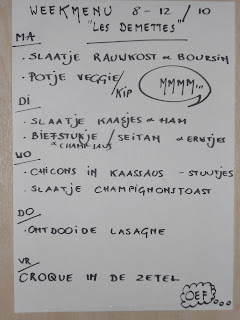 WEEKMENU 8 - 12 / 10
"LES DEMETTES"
MA
· SLAATJE RAUWKOST & BOURSIN
· POTJE VEGGIE / KIP
MMMM...
DI
· SLAATJE KAASJES & HAM
· BIEFSTUKJE / SEITAN & ERWTJES
& CHAMP. SAUS
WO
· CHICONS IN KAASSAUS - STUUTJES
· SLAATJE CHAMPIGNONSTOAST
DO
· ONTDOOIDE LASAGNE
VR
CROQUE IN DE ZETEL
OEF